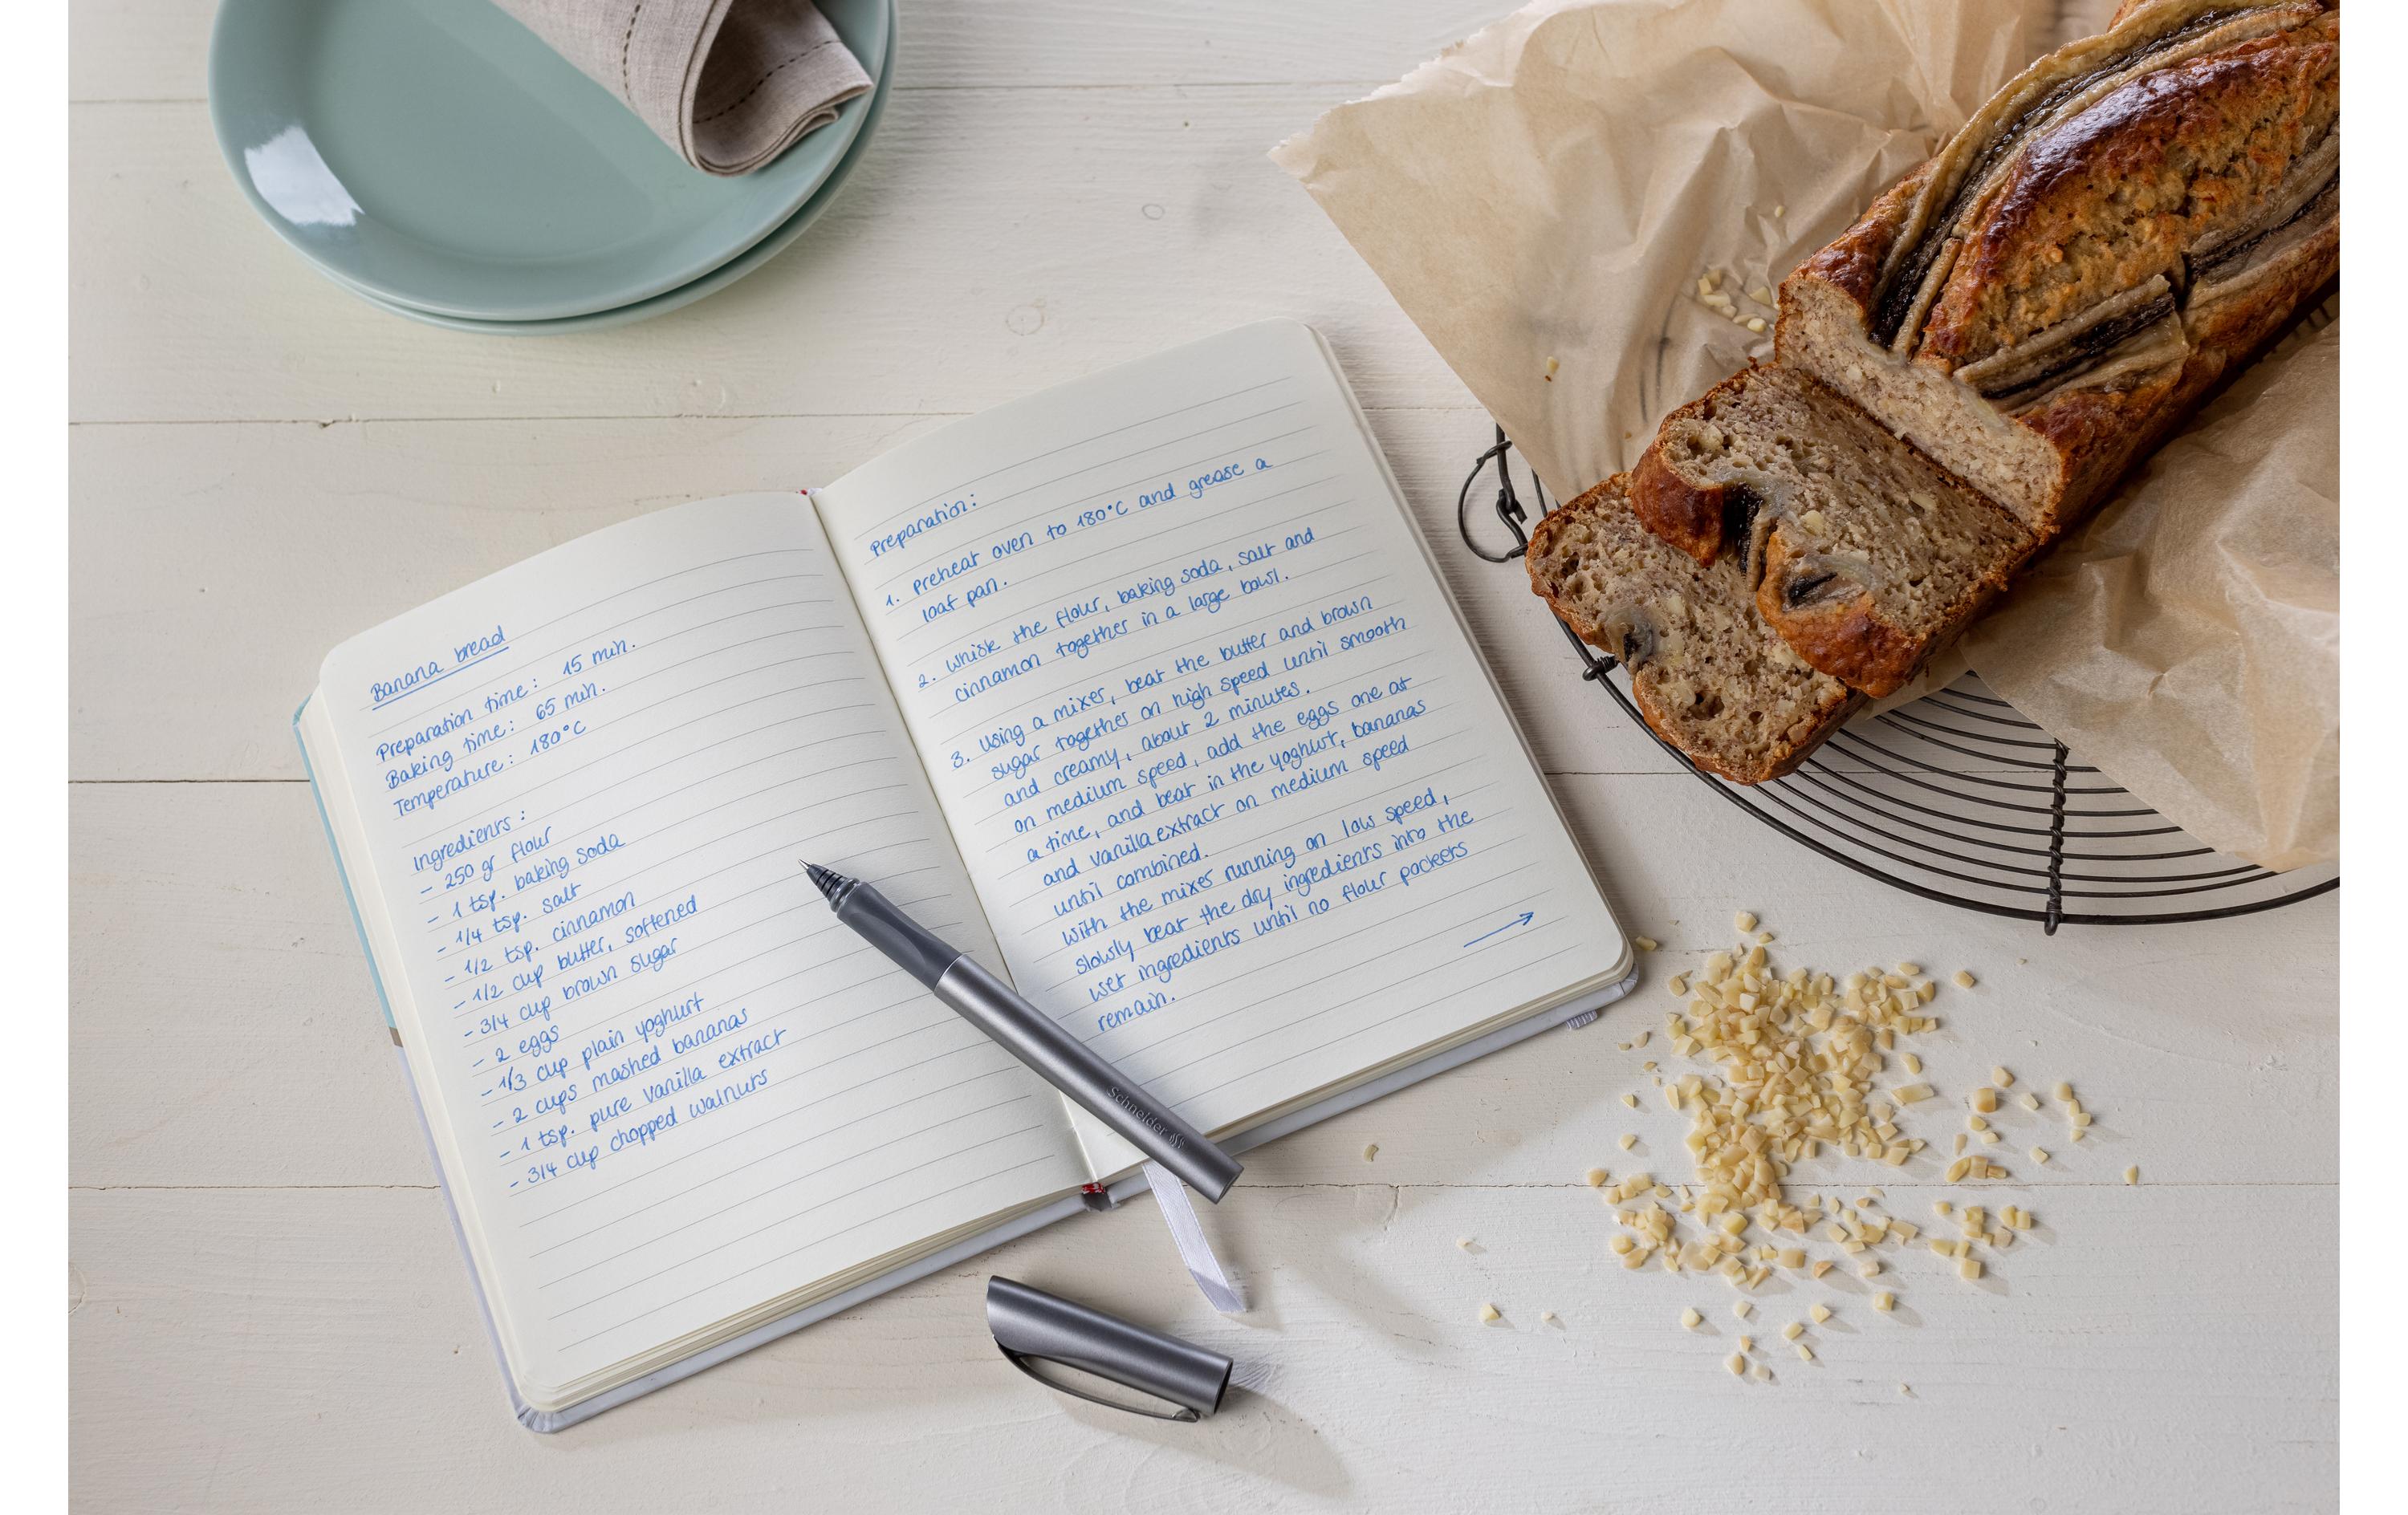 Banana bread
Preparation time: 15 min.
Baking time: 65 min.
Temperature: 180°C
Ingredients:
- 250 gr flour
- 1 tsp. baking soda
- 1/4 tsp. salt
- 1/2 tsp. cinnamon
- 1/2 cup butter, softened
- 3/4 cup brown sugar
- 2 eggs
- 1/3 cup plain yoghurt
- 2 cups mashed bananas
- 1 tsp. pure vanilla extract
- 3/4 cup chopped walnuts
Preparation:
1. Preheat oven to 180°C and grease a
loaf pan.
2. Whisk the flour, baking soda, salt and
cinnamon together in a large bowl.
3. Using a mixer, beat the butter and brown
sugar together on high speed until smooth
and creamy, about 2 minutes.
on medium speed, add the eggs one at
a time, and beat in the yoghurt, bananas
and vanilla extract on medium speed
until combined.
With the mixer running on low speed,
slowly beat the dry ingredients into the
wet ingredients until no flour pockets
remain.
→
Schneider